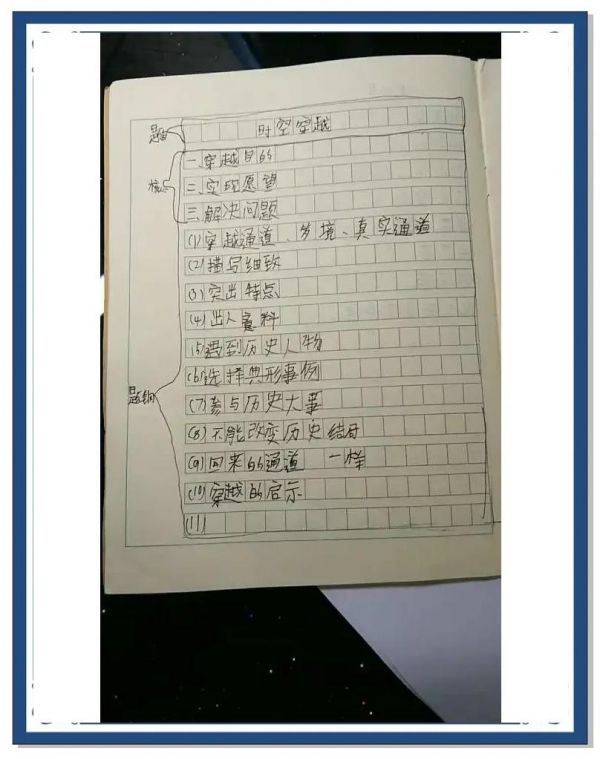 题目
时空穿越
一、穿越目的
核点
二、实现愿望
三、解决问题
(1)穿越通道、梦境、真实通道
(2)描写细致
(3)突出特点
(4)出人意料
(5)遇到历史人物
(6)选择典形事例
题纲
(7)参与历史大事
(8)不能改变历史结局
(9)回来的通道 一样
(10)穿越的启示
(11)